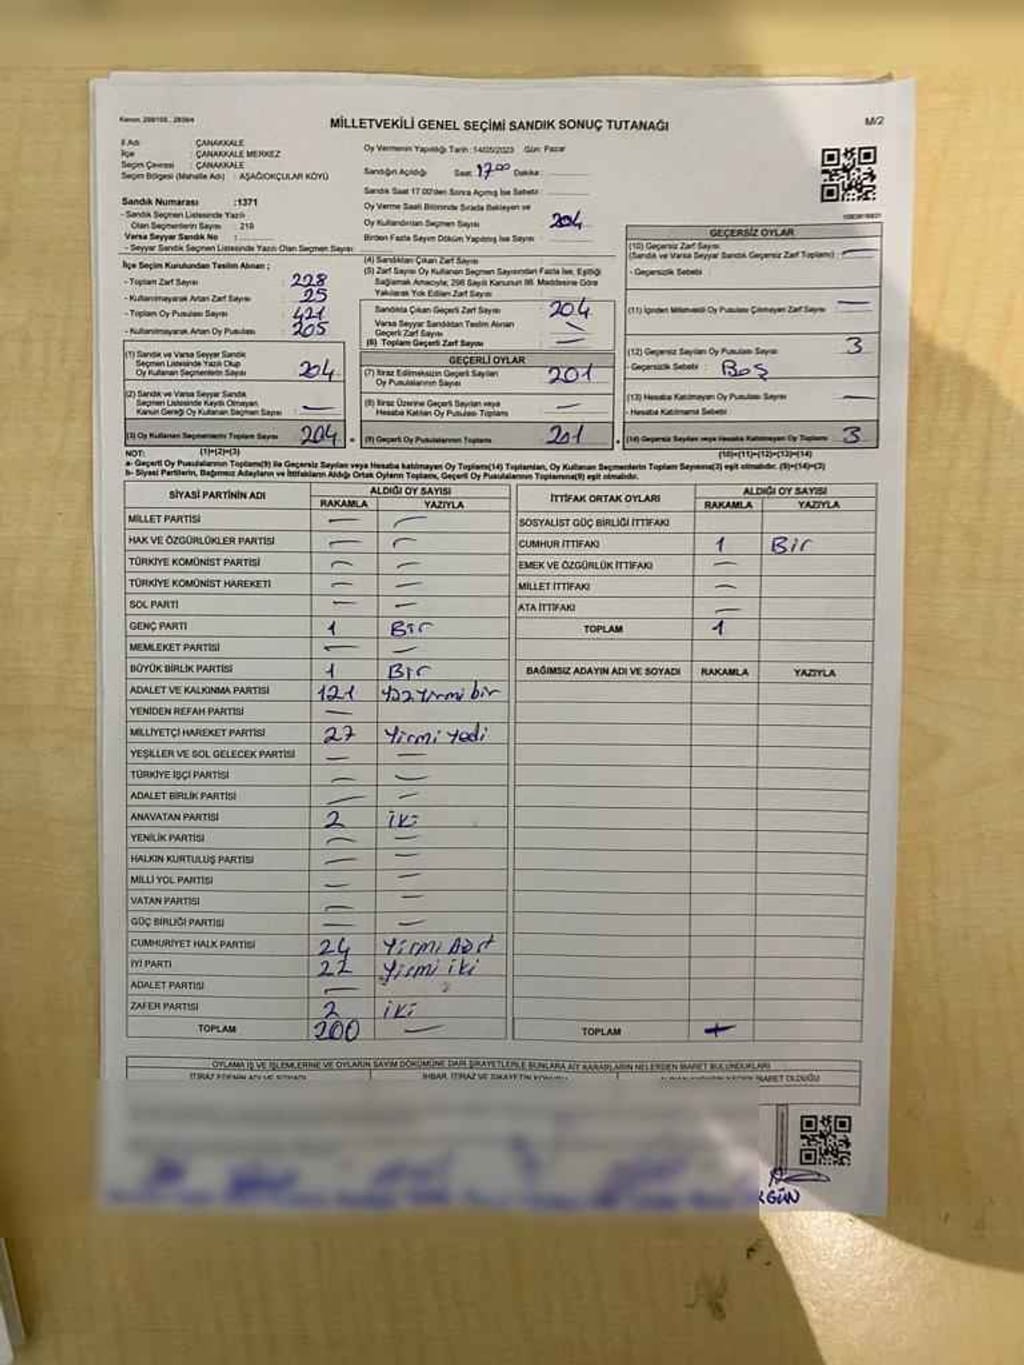 MİLLETVEKİLİ GENEL SEÇİMİ SANDIK SONUÇ TUTANAĞI
M/2
İl Adı : ÇANAKKALE
İlçe : ÇANAKKALE MERKEZ
Seçim Çevresi : ÇANAKKALE
Seçim Bölgesi (Mahalle Adı) : AŞAĞIOKÇULAR KÖYÜ
Oy Vermenin Yapıldığı Tarih : 14/05/2023 Gün: Pazar
Sandığın Açıldığı Saat: 17 00 Dakika:
Sandık Saat 17.00'den Sonra Açılmış İse Sebebi :
Oy Verme Saati Bitiminde Sırada Bekleyen ve
Oy Kullandırılan Seçmen Sayısı : 204
Birden Fazla Sayım Döküm Yapılmış İse Sayısı :
Sandık Numarası :1371
- Sandık Seçmen Listesinde Yazılı
Olan Seçmenlerin Sayısı :
Varsa Seyyar Sandık No :
- Seyyar Sandık Seçmen Listesinde Yazılı Olan Seçmen Sayısı :
İlçe Seçim Kurulundan Teslim Alınan ;
- Toplam Zarf Sayısı : 228
- Kullanılmayarak Artan Zarf Sayısı : 25
- Toplam Oy Pusulası Sayısı : 421
- Kullanılmayarak Artan Oy Pusulası : 205
(1) Sandık ve Varsa Seyyar Sandık
Seçmen Listesinde Yazılı Olup
Oy Kullanan Seçmenlerin Sayısı : 204
(2) Sandık ve Varsa Seyyar Sandık
Seçmen Listesinde Kayıtlı Olmayan
Kanun Gereği Oy Kullanan Seçmen Sayısı : —
(3) Oy Kullanan Seçmenlerin Toplam Sayısı : 204
(1)+(2)=(3)
(4) Sandıktan Çıkan Zarf Sayısı :
(5) Zarf Sayısı Oy Kullanan Seçmen Sayısından Fazla İse, Eşitliği
Sağlamak Amacıyla; 298 Sayılı Kanunun 98. Maddesine Göre
Yakılarak Yok Edilen Zarf Sayısı :
Sandıkta Çıkan Geçerli Zarf Sayısı : 204
Varsa Seyyar Sandıktan Teslim Alınan
Geçerli Zarf Sayısı : —
(6) Toplam Geçerli Zarf Sayısı : —
GEÇERLİ OYLAR
(7) İtiraz Edilmeksizin Geçerli Sayılan
Oy Pusulalarının Sayısı : 201
(8) İtiraz Üzerine Geçerli Sayılan veya
Hesaba Katılan Oy Pusulası Toplamı : —
(9) Geçerli Oy Pusulalarının Toplamı : 201
GEÇERSİZ OYLAR
(10) Geçersiz Zarf Sayısı
(Sandık ve Varsa Seyyar Sandık Geçersiz Zarf Toplamı) : —
- Geçersizlik Sebebi :
(11) İçinden Milletvekili Oy Pusulası Çıkmayan Zarf Sayısı : —
(12) Geçersiz Sayılan Oy Pusulası Sayısı : 3
- Geçersizlik Sebebi : Boş
(13) Hesaba Katılmayan Oy Pusulası Sayısı : —
- Hesaba Katılmama Sebebi :
(14) Geçersiz Sayılan veya Hesaba Katılmayan Oy Toplamı : 3
(10)+(11)+(12)+(13)=(14)
NOT:
a- Geçerli Oy Pusulalarının Toplamı(9) ile Geçersiz Sayılan veya Hesaba katılmayan Oy Toplamı(14) Toplamları, Oy Kullanan Seçmenlerin Toplam Sayısına(3) eşit olmalıdır. (9)+(14)=(3)
b- Siyasi Partilerin, Bağımsız Adayların ve İttifakların Aldığı Ortak Oyların Toplamı, Geçerli Oy Pusulalarının Toplamına(9) eşit olmalıdır.
SİYASİ PARTİNİN ADI ALDIĞI OY SAYISI
RAKAMLA YAZIYLA
MİLLET PARTİSİ — —
HAK VE ÖZGÜRLÜKLER PARTİSİ — —
TÜRKİYE KOMÜNİST PARTİSİ — —
TÜRKİYE KOMÜNİST HAREKETİ — —
SOL PARTİ — —
GENÇ PARTİ 1 Bir
MEMLEKET PARTİSİ — —
BÜYÜK BİRLİK PARTİSİ 1 Bir
ADALET VE KALKINMA PARTİSİ 121 yüzyirmi bir
YENİDEN REFAH PARTİSİ —
MİLLİYETÇİ HAREKET PARTİSİ 27 Yirmi Yedi
YEŞİLLER VE SOL GELECEK PARTİSİ — —
TÜRKİYE İŞÇİ PARTİSİ — —
ADALET BİRLİK PARTİSİ — —
ANAVATAN PARTİSİ 2 iki
YENİLİK PARTİSİ — —
HALKIN KURTULUŞ PARTİSİ — —
MİLLİ YOL PARTİSİ — —
VATAN PARTİSİ — —
GÜÇ BİRLİĞİ PARTİSİ — —
CUMHURİYET HALK PARTİSİ 24 Yirmi dört
İYİ PARTİ 22 Yirmi iki
ADALET PARTİSİ —
ZAFER PARTİSİ 2 iki
TOPLAM 200 —
İTTİFAK ORTAK OYLARI ALDIĞI OY SAYISI
RAKAMLA YAZIYLA
SOSYALİST GÜÇ BİRLİĞİ İTTİFAKI
CUMHUR İTTİFAKI 1 Bir
EMEK VE ÖZGÜRLÜK İTTİFAKI —
MİLLET İTTİFAKI —
ATA İTTİFAKI —
TOPLAM 1
BAĞIMSIZ ADAYIN ADI VE SOYADI RAKAMLA YAZIYLA
TOPLAM
OYLAMA İŞ VE İŞLEMLERİNE VE OYLARIN SAYIM DÖKÜMÜNE DAİR ŞİKAYETLERLE BUNLARA AİT KARARLARIN NELERDEN İBARET BULUNDUKLARI
İTİRAZ EDENİN ADI VE SOYADI İHBAR, İTİRAZ VE ŞİKAYETİN KONUSU